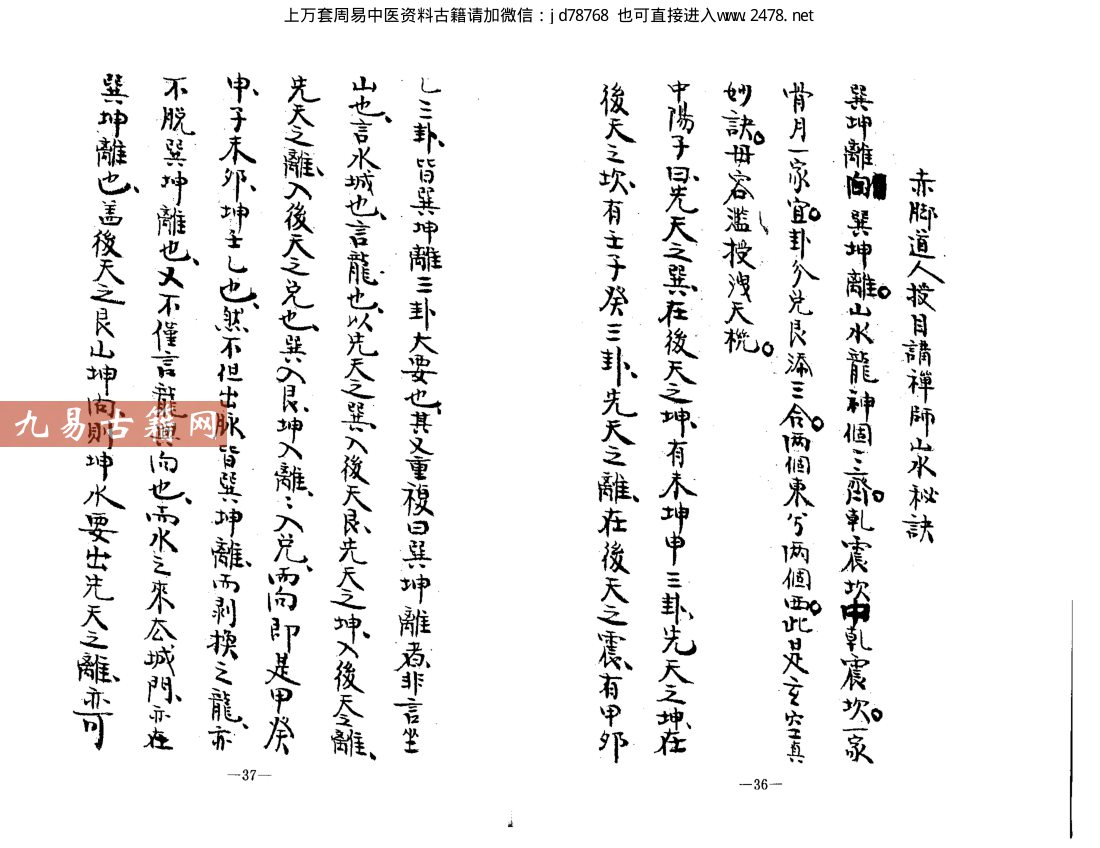 上万套周易中医资料古籍请加微信：jd78768 也可直接进入www.2478.net
赤脚道人授目講禪師山水秘訣
巽坤離向巽坤離。山水龍神個〻齊。乾震坎中乾震坎。一家
骨月一家宜。卦分兑艮添三合。两個東兮两個西。此是玄空真
妙訣。毋容濫授洩天機。
中陽子曰、先天之巽、在後天之坤、有未坤申三卦、先天之坤、在
後天之坎、有壬子癸三卦、先天之離、在後天之震、有甲夘
乙三卦、皆巽坤離三卦大要也、其又重複曰巽坤離者、非言坐
山也、言水城也、言龍也、以先天之巽、入後天艮、先天之坤、入後天之離、
先天之離、入後天之兑也、巽入艮、坤入離、〻入兑、而向即是甲癸
申、子未夘、坤壬乙也、然不但出脉皆巽坤離、而剥換之龍、亦
不脱巽坤離也、又不僅言龍與向也、而水之來去城門、亦在
巽坤離也、盖後天之艮山坤向、則坤水要出先天之離、亦可
九易古籍网
—37—
—36—